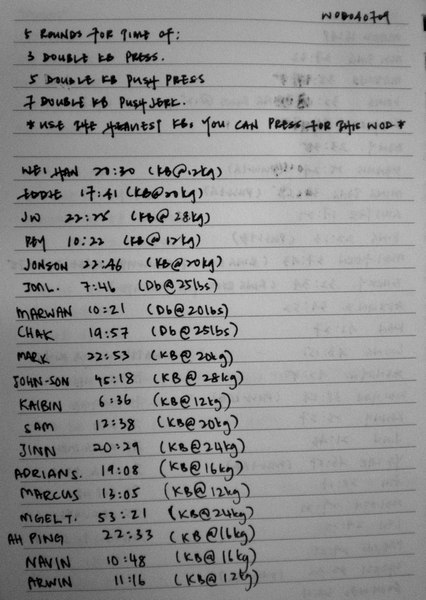 WOD040709
5 ROUNDS FOR TIME OF:
3 DOUBLE KB PRESS.
5 DOUBLE KB PUSH PRESS
7 DOUBLE KB PUSH JERK.
* USE THE HEAVIEST KBs YOU CAN PRESS FOR THIS WOD *
WEI HAN 20:30 (KB@12kg)
EDDIE 17:41 (KB@20kg)
JW 22:28 (KB@28kg)
10:22 (KB@12kg)
JONSON 22:46 (KB@20kg)
JOML. 7:46 (Db@25lbs)
MARWAN 10:21 (Db@20lbs)
CHAK 19:57 (Db@25lbs)
MARK 22:53 (KB@20kg)
JOHN-SON 45:18 (KB@28kg)
KAIBIN 6:36 (KB@12kg)
SAM 12:38 (KB@20kg)
JINN 20:29 (KB@24kg)
ADRIANS. 19:08 (KB@16kg)
MARCUS 13:05 (KB@12kg)
NIGEL T. 53:21 (KB@24kg)
AH PING 22:33 (KB@16kg)
NAVIN 10:48 (KB@16kg)
ARWIN 11:16 (KB@12kg)